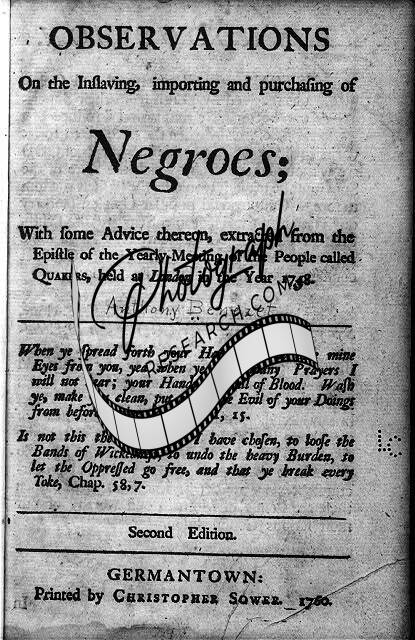 OBSERVATIONS
On the Inſlaving, importing and purchaſing of
Negroes;
With ſome Advice thereon, extracted from the
Epiſtle of the Yearly-Meeting of the People called
QUAKERS, held at London in the Year 1758.
Anthony Benezet
Photograph
RESEARCH.COM
When ye ſpread forth your mine
Eyes from you, yea when ye many Prayers I
will not ear; your Hand of Blood. Waſh
ye, make clean, put Evil of your Doings
from before 15.
Is not this the I have choſen, to looſe the
Bands of to undo the heavy Burden, to
let the Oppreſſed go free, and that ye break every
Yoke, Chap. 58, 7.
Second Edition.
GERMANTOWN:
Printed by CHRISTOPHER SOWER. 1760.